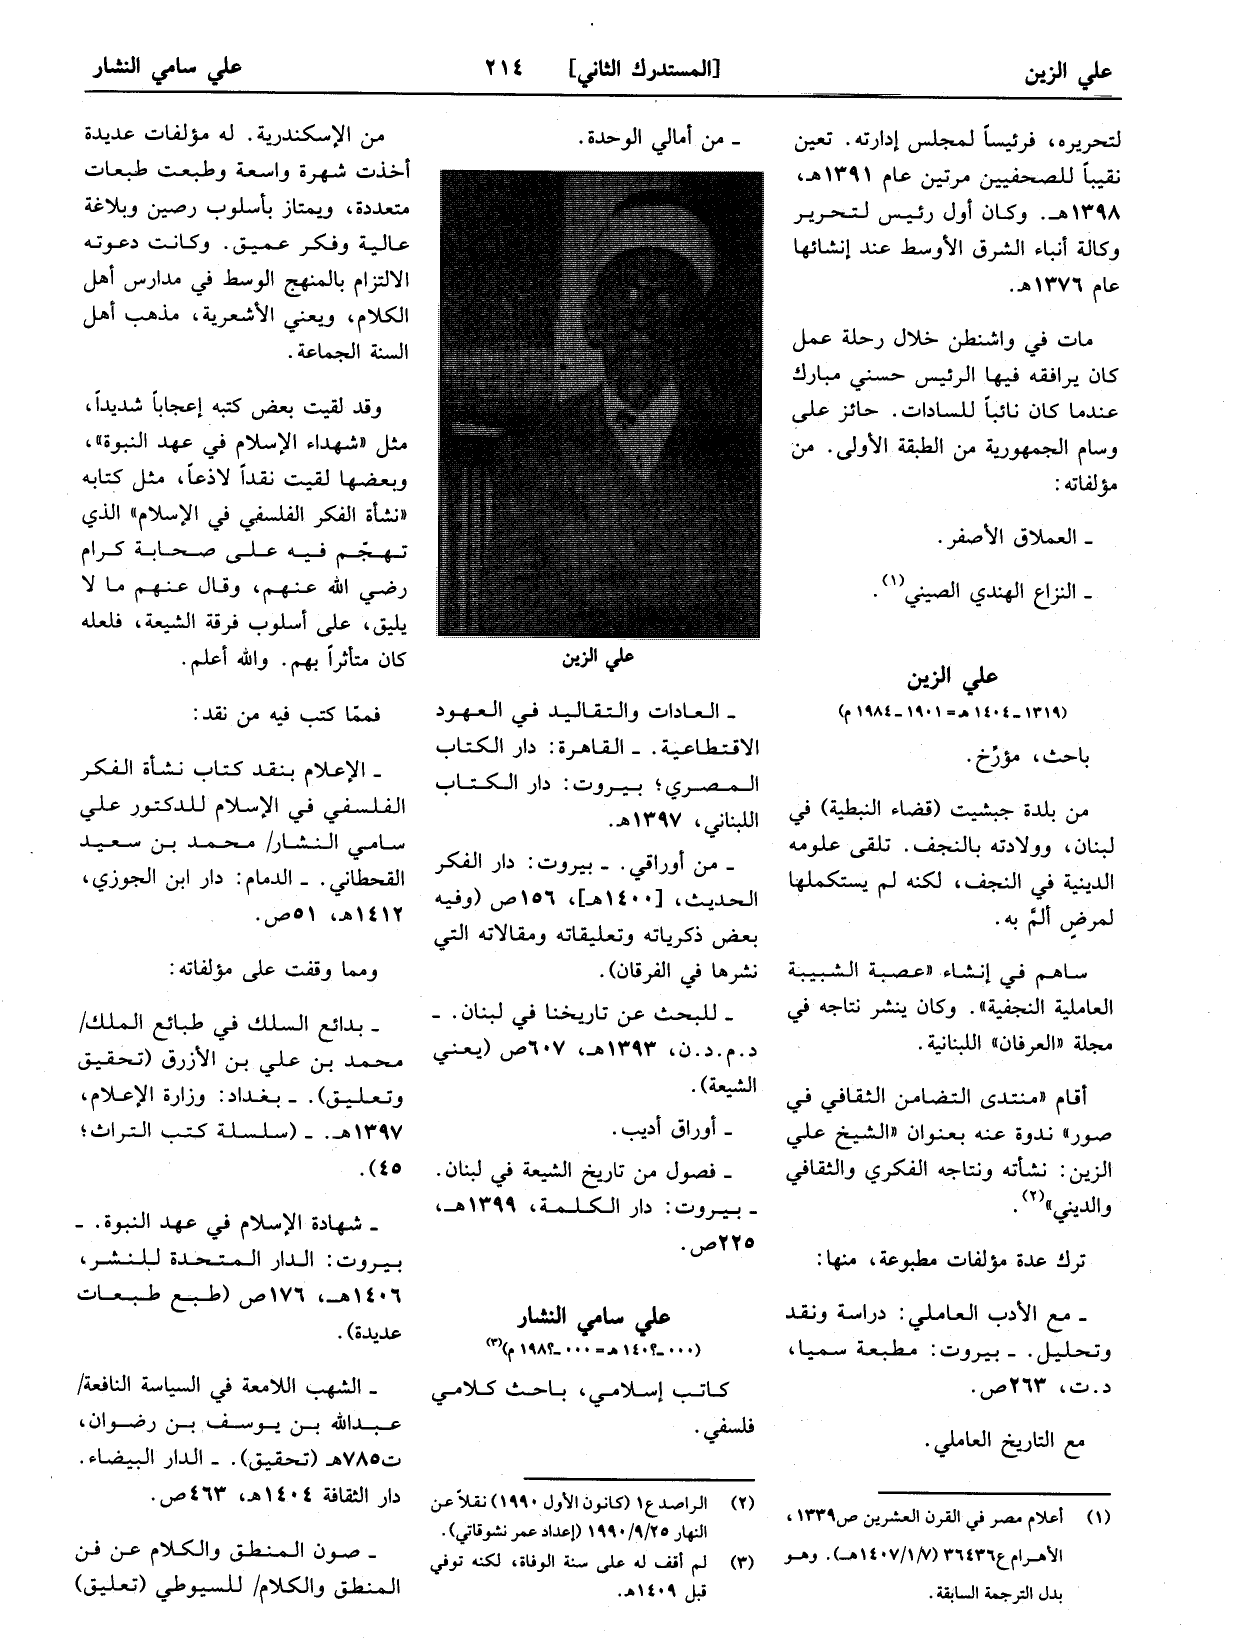 علي الزين
[المستدرك الثاني] ٢١٤
علي سامي النشار
لتحريره، فرئيساً لمجلس إدارته. تعين
نقيباً للصحفيين مرتين عام ١٣٩١هـ،
١٣٩٨هـ. وكان أول رئيس لتحرير
وكالة أنباء الشرق الأوسط عند إنشائها
عام ١٣٧٦هـ.
مات في واشنطن خلال رحلة عمل
كان يرافقه فيها الرئيس حسني مبارك
عندما كان نائباً للسادات. حائز على
وسام الجمهورية من الطبقة الأولى. من
مؤلفاته:
ـ العملاق الأصفر.
ـ النزاع الهندي الصيني(١).
علي الزين
(١٣١٩ـ١٤٠٤هـ=١٩٠١ـ١٩٨٤م)
باحث، مؤرّخ.
من بلدة جبشيت (قضاء النبطية) في
لبنان، وولادته بالنجف. تلقى علومه
الدينية في النجف، لكنه لم يستكملها
لمرضٍ ألمَّ به.
ساهم في إنشاء «عصبة الشبيبة
العاملية النجفية». وكان ينشر نتاجه في
مجلة «العرفان» اللبنانية.
أقام «منتدى التضامن الثقافي في
صور» ندوة عنه بعنوان «الشيخ علي
الزين: نشأته ونتاجه الفكري والثقافي
والديني»(٢).
ترك عدة مؤلفات مطبوعة، منها:
ـ مع الأدب العاملي: دراسة ونقد
وتحليل. ـ بيروت: مطبعة سميا،
د.ت، ٢٦٣ص.
مع التاريخ العاملي.
(١) أعلام مصر في القرن العشرين ص١٣٣٩،
الأهرام ع٣٦٤٣٦ (١٤٠٧/١/٧هـ). وهو
بدل الترجمة السابقة.
ـ من أمالي الوحدة.
علي الزين
ـ العادات والتقاليد في العهود
الاقتطاعية. ـ القاهرة: دار الكتاب
المصري؛ بيروت: دار الكتاب
اللبناني، ١٣٩٧هـ.
ـ من أوراقي. ـ بيروت: دار الفكر
الحديث، [١٤٠٠هـ]، ١٥٦ص (وفيه
بعض ذكرياته وتعليقاته ومقالاته التي
نشرها في الفرقان).
ـ للبحث عن تاريخنا في لبنان. ـ
د.م.د.ن، ١٣٩٣هـ، ٦٠٧ص (يعني
الشيعة).
ـ أوراق أديب.
ـ فصول من تاريخ الشيعة في لبنان.
ـ بيروت: دار الكلمة، ١٣٩٩هـ،
٢٢٥ص.
علي سامي النشار
(٠٠٠ـ؟١٤٠هـ=٠٠٠ـ؟١٩٨م)(٣)
كاتب إسلامي، باحث كلامي
فلسفي.
(٢) الراصد ع١ (كانون الأول ١٩٩٠) نقلاً عن
النهار ١٩٩٠/٩/٢٥ (إعداد عمر نشوقاتي).
(٣) لم أقف له على سنة الوفاة، لكنه توفي
قبل ١٤٠٩هـ.
من الإسكندرية. له مؤلفات عديدة
أخذت شهرة واسعة وطبعت طبعات
متعددة، ويمتاز بأسلوب رصين وبلاغة
عالية وفكر عميق. وكانت دعوته
الالتزام بالمنهج الوسط في مدارس أهل
الكلام، ويعني الأشعرية، مذهب أهل
السنة الجماعة.
وقد لقيت بعض كتبه إعجاباً شديداً،
مثل «شهداء الإسلام في عهد النبوة»،
وبعضها لقيت نقداً لاذعاً، مثل كتابه
«نشأة الفكر الفلسفي في الإسلام» الذي
تهجّم فيه على صحابة كرام
رضي الله عنهم، وقال عنهم ما لا
يليق، على أسلوب فرقة الشيعة، فلعله
كان متأثراً بهم. والله أعلم.
فممّا كتب فيه من نقد:
ـ الإعلام بنقد كتاب نشأة الفكر
الفلسفي في الإسلام للدكتور علي
سامي النشار/ محمد بن سعيد
القحطاني. ـ الدمام: دار ابن الجوزي،
١٤١٢هـ، ٥١ص.
ومما وقفت على مؤلفاته:
ـ بدائع السلك في طبائع الملك/
محمد بن علي بن الأزرق (تحقيق
وتعليق). ـ بغداد: وزارة الإعلام،
١٣٩٧هـ. ـ (سلسلة كتب التراث؛
٤٥).
ـ شهادة الإسلام في عهد النبوة. ـ
بيروت: الدار المتحدة للنشر،
١٤٠٦هـ، ١٧٦ص (طبع طبعات
عديدة).
ـ الشهب اللامعة في السياسة النافعة/
عبدالله بن يوسف بن رضوان،
ت٧٨٥هـ (تحقيق). ـ الدار البيضاء.
دار الثقافة ١٤٠٤هـ، ٤٦٣ص.
ـ صون المنطق والكلام عن فن
المنطق والكلام/ للسيوطي (تعليق)